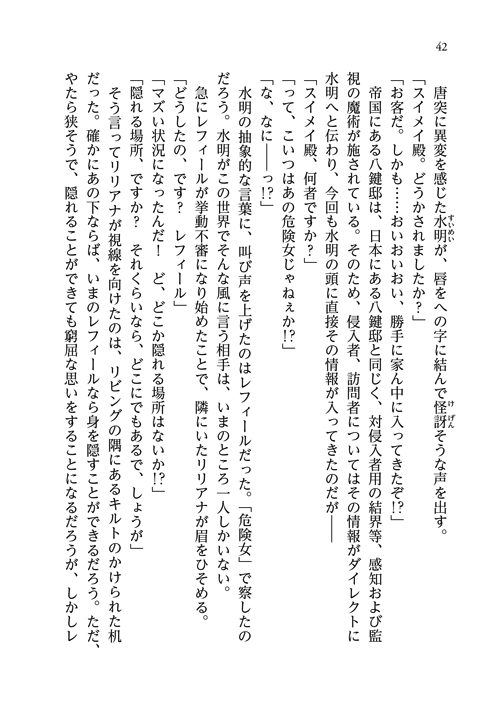 42
唐突に異変を感じた水明が、唇をへの字に結んで怪訝そうな声を出す。
すいめい
けげん
「スイメイ殿。どうかされましたか？」
「お客だ。しかも……おいおいおい、勝手に家ん中に入ってきたぞ!?」
帝国にある八鍵邸は、日本にある八鍵邸と同じく、対侵入者用の結界等、感知および監
視の魔術が施されている。そのため、侵入者、訪問者についてはその情報がダイレクトに
水明へと伝わり、今回も水明の頭に直接その情報が入ってきたのだが――
「スイメイ殿、何者ですか？」
「って、こいつはあの危険女じゃねぇか!?」
「な、なに――っ!?」
水明の抽象的な言葉に、叫び声を上げたのはレフィールだった。「危険女」で察したの
だろう。水明がこの世界でそんな風に言う相手は、いまのところ一人しかいない。
急にレフィールが挙動不審になり始めたことで、隣にいたリリアナが眉をひそめる。
「どうしたの、です？　レフィール」
「マズい状況になったんだ！　ど、どこか隠れる場所はないか!?」
「隠れる場所、ですか？　それくらいなら、どこにでもあるで、しょうが」
そう言ってリリアナが視線を向けたのは、リビングの隅にあるキルトのかけられた机
だった。確かにあの下ならば、いまのレフィールなら身を隠すことができるだろう。ただ、
やたら狭そうで、隠れることができても窮屈な思いをすることになるだろうが、しかしレ